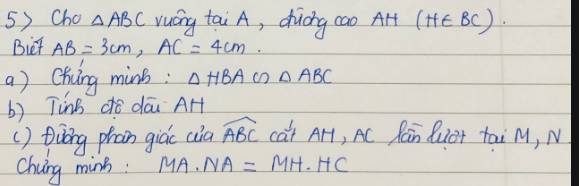 5) Cho △ABC vuông tại A, đường cao AH (H∈BC).
Biết AB = 3cm, AC = 4cm.
a) Chứng minh : △HBA ∽ △ABC
b) Tính độ dài AH
c) Đường phân giác của \widehat{ABC} cắt AH, AC lần lượt tại M, N
Chứng minh : MA.NA = MH.HC